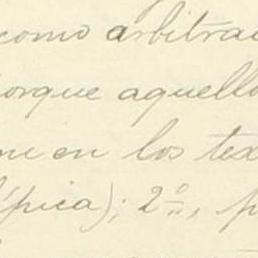 como arbitra
orque aquello
en los tex
ípica); 2º., p